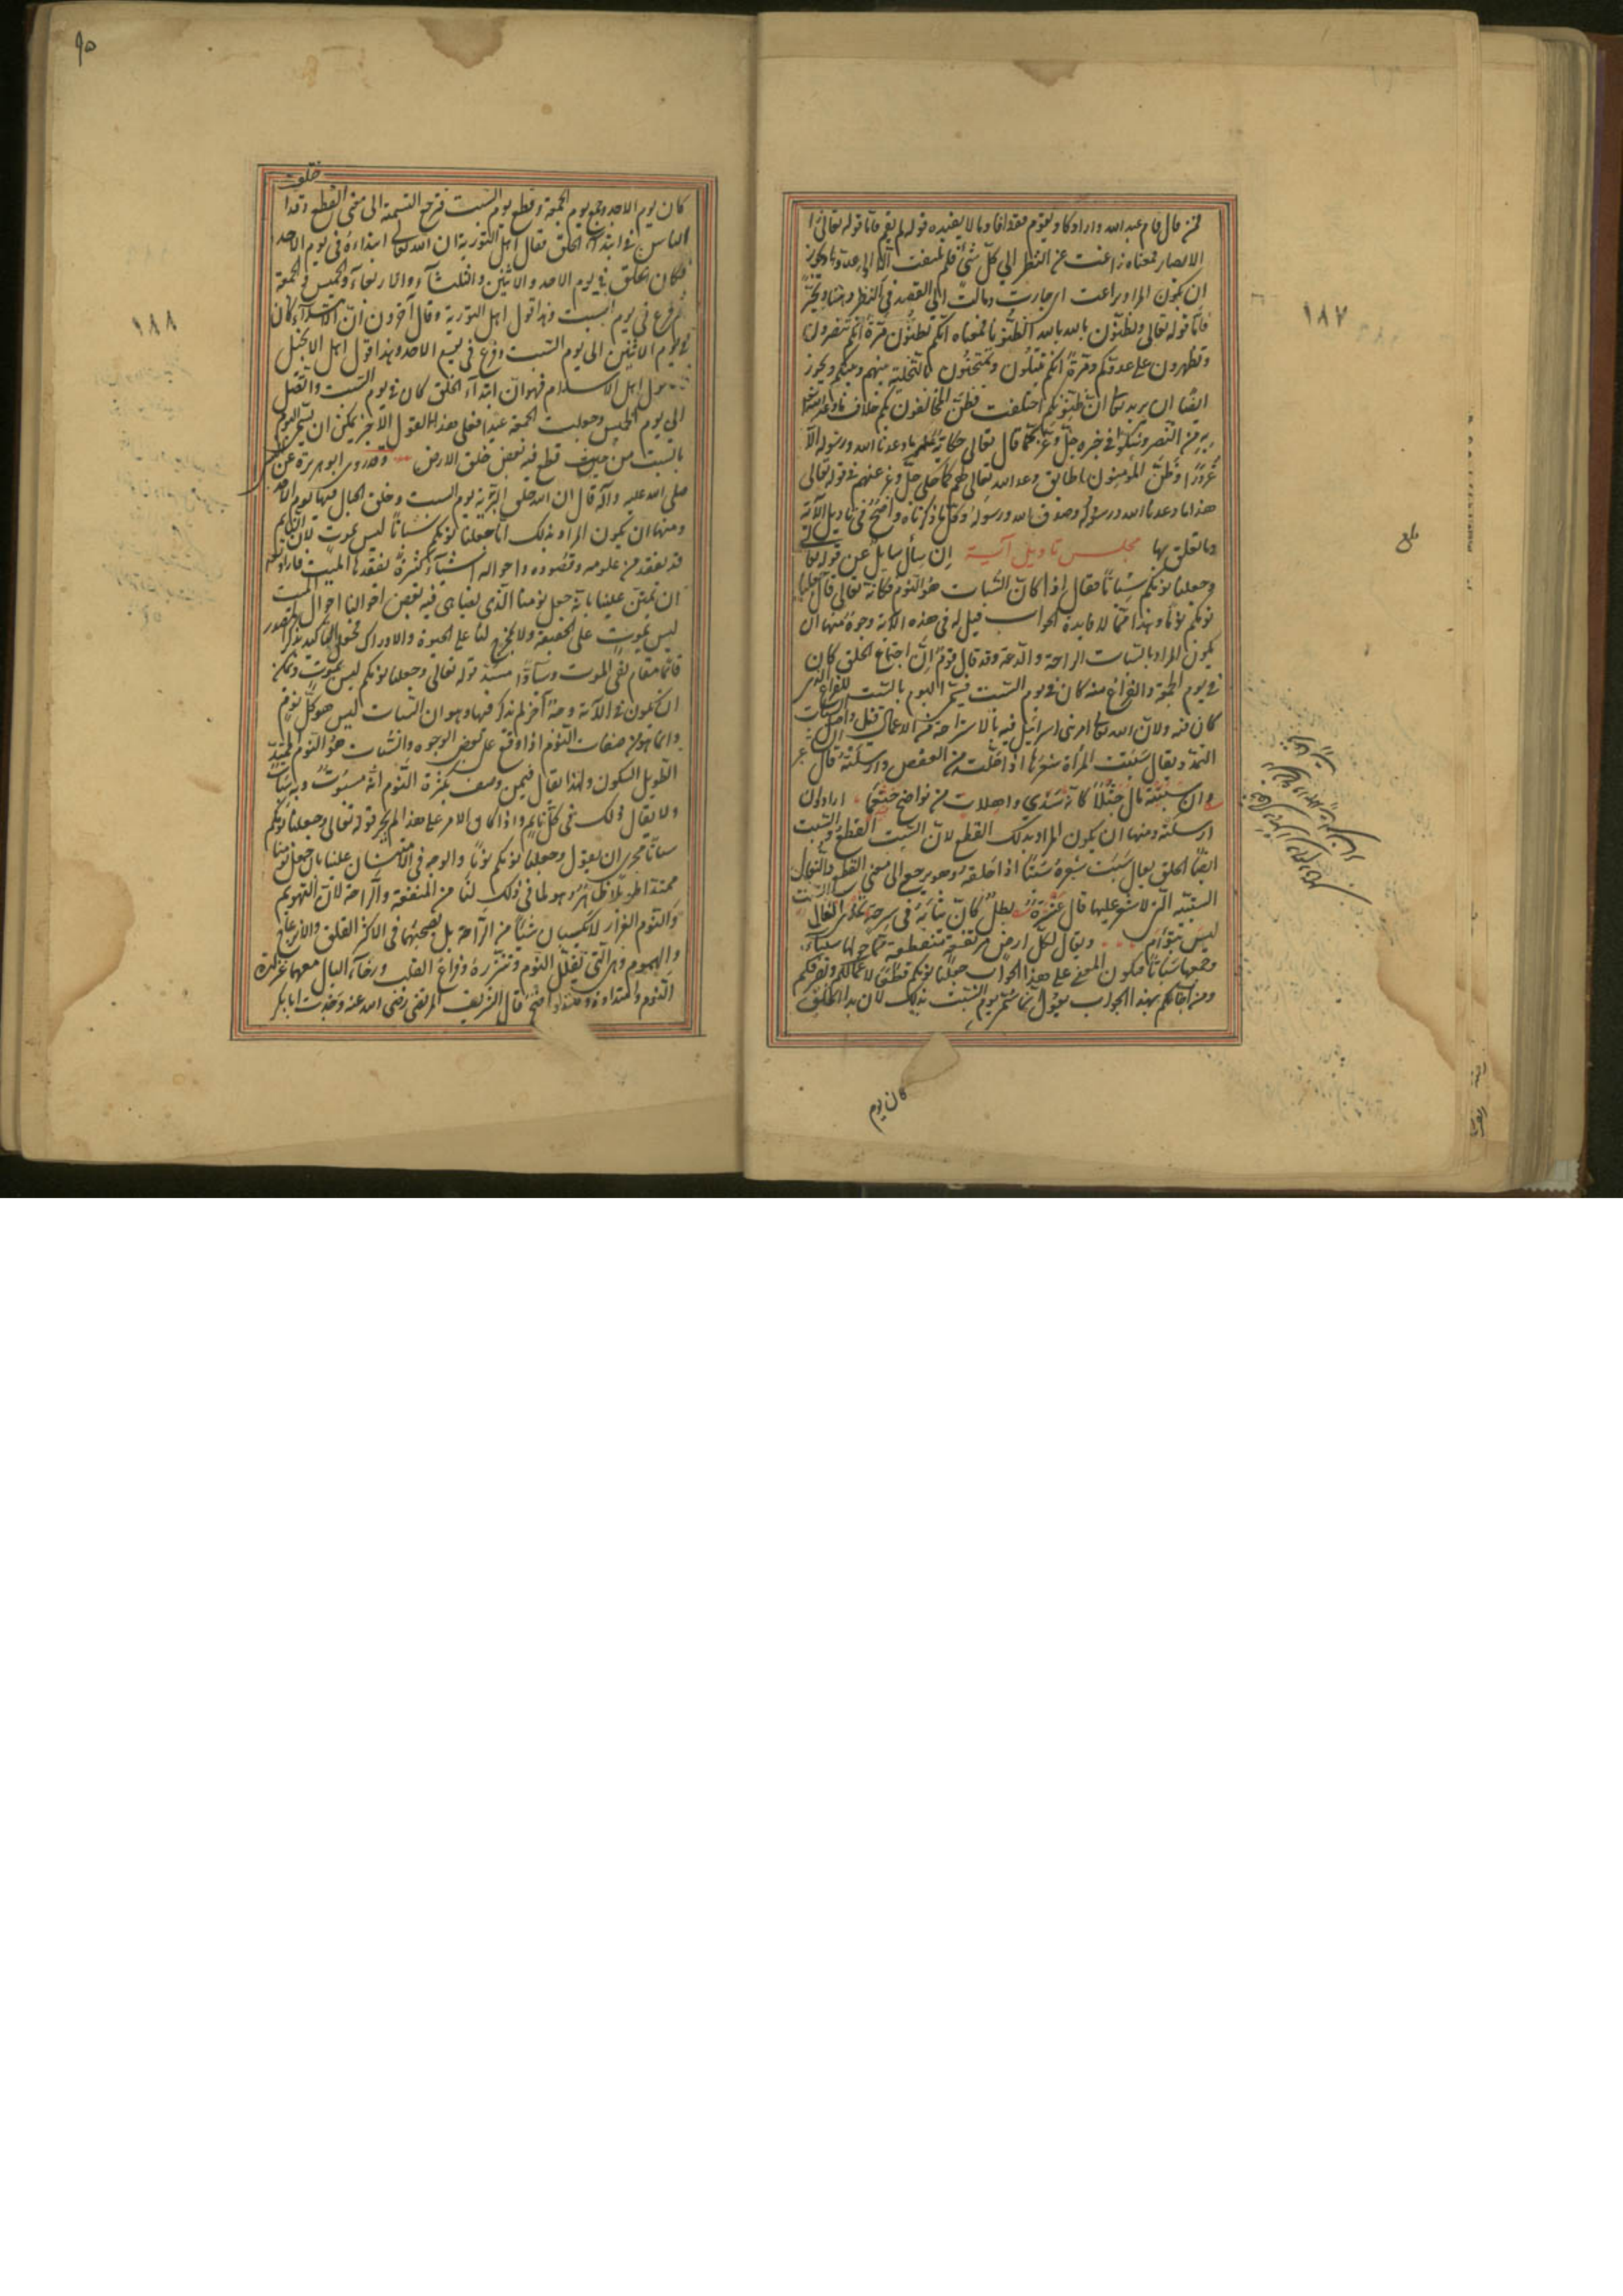 ١٨٧
فمن قال قام عبد الله واراد كاد يقوم فقد افاد ما لا يفيده قوله لم يقم فاما قوله تعالى
الابصار فمعناه زاغت عن النظر الى كل شئ فلم تلتفت الا الى عدوها ويجوز
ان يكون المراد بزاغت اى جارت ومالت الى القصد فى النظر دهشا وتحيرا
فاما قوله تعالى وتظنون بالله الظنونا فمعناه انكم تظنون مرة انكم تنصرون
وتظهرون على عدوكم ومرة انكم تبتلون وتمتحنون بالتخلية بينهم وبينكم ويجوز
ايضا ان يريد تعالى ان ظنونكم اختلفت فظن المخالفون بكم خلاف ما وعدكم الله
به من النصر وشكوا فى خبره جل وعز كما قال تعالى حكاية عنهم ما وعدنا الله ورسوله الا
غرورا وظن المؤمنون ما طابق وعد الله تعالى لهم كما حكى جل وعز عنهم فى قوله تعالى
هذا ما وعدنا الله ورسوله وصدق الله ورسوله وكل ما ذكرناه واضح فى تاويل الآية
وما تعلق بها مجلس تاويل آية ان سأل سايل عن قوله تعالى
وجعلنا نومكم سباتا فقال اذا كان السبات هو النوم فكانه تعالى قال وجعلنا
نومكم نوما وهذا مما لا فايدة الجواب قيل له فى هذه الآية وجوه منها ان
يكون المراد بالسبات الراحة والدعة وقد قال قوم ان اجتماع الخلق كان
فى يوم الجمعة والفراغ منه كان فى يوم السبت فسمى اليوم بالسبت للفراغ الذى
كان فيه ولان الله تعالى امر بنى اسرائيل فيه بالاستراحة من الاعمال قيل واصل السبات
التمدد يقال سبتت المرأة شعرها اذا حلته من العقص وارسلته قال الشاعر
وان سبتته مال جثلا كانه سدى واهلات من نواضح خثعما اراد ان
ارسلته ومنها ان يكون المراد بذلك القطع لان السبت القطع والسبت
ايضا الحلق يقال سبت شعره سبتا اذا حلقه وهو يرجع الى معنى القطع والنعال
السبتية التى لا شعر عليها قال عنترة بطل كان ثيابه فى سرحة يحذى نعال السبت
ليس بتوأم ويقال لكل ارض مرتفعة منقطعة مما حولها سبتاء
وجمعها سباتا فيكون المعنى على هذا الجواب جعلنا نومكم قطعا لاعمالكم وتصرفكم
ومن اجابكم بهذا الجواب يقول انما سمى يوم السبت بذلك لان بدا الخلق
كان يوم
بلغ
٩٥
١٨٨
كان يوم الاحد وجمع يوم الجمعة وقطع يوم السبت فترجع التسمية الى معنى القطع وقد اختلف
الناس فى ابتداء الخلق فقال اهل التورية ان الله تعالى ابتداءه فى يوم الاحد
فكان الخلق فى يوم الاحد والاثنين والثلثاء والاربعاء والخميس والجمعة
ثم فرغ فى يوم السبت وهذا قول اهل التورية وقال آخرون ان الابتداء كان
فى يوم الاثنين الى يوم السبت وفرغ فى يوم الاحد وهذا قول اهل الانجيل
قول اهل الاسلام فهو ان ابتداء الخلق كان فى يوم السبت واتصل
الى يوم الخميس وجعلت الجمعة عيدا فعلى هذا القول الاخر يمكن ان يسمى اليوم
بالسبت من حيث قطع فيه بعض خلق الارض وقد روى ابو هريرة عن النبى
صلى الله عليه وآله قال ان الله خلق التربة يوم السبت وخلق الجبال فيها يوم الاحد
ومنها ان يكون المراد بذلك انا جعلنا نومكم سباتا ليس بموت لان النايم
قد يفقد من علومه وقصوده واحواله اشياء كثيرة يفقدها الميت فاراد تعالى
ان يمتن علينا بانه جعل نومنا الذى يضاهى فيه بعض احوالنا احوال الميت
ليس بموت على الحقيقة ولا يخرج لنا على الحيوة والادراك فجعل التاكيد بذكر المصدر
قائما مقام نفى الموت وسادا مسد قوله تعالى وجعلنا نومكم ليس بموت ويمكن
ان يكون فى الآية وجه آخر لم يذكر فيها وهو ان السبات ليس هو كل نوم
وانما هو من صفات النوم اذا وقع على بعض الوجوه والسبات هو النوم الممتد
الطويل السكون ولهذا يقال فيمن وصف بكثرة النوم انه مسبوت وبه سبات
ولا يقال ذلك فى كل نايم واذا كان الامر على هذا لم يجر قوله تعالى وجعلنا نومكم
سباتا مجرى ان يقول وجعلنا نومكم نوما والوجه فى الامتنان علينا بان جعل نومنا
ممتدا طويلا ظاهر وهو لما فى ذلك لنا من المنفعة والراحة لان التهويم
والنوم الغرار لا يكسبان شيئا من الراحة بل يصحبهما فى الاكثر القلق والانزعاج
والهموم وهى التى تقلل النوم وتنزره وفراغ القلب ورخاء البال معها غزارة
النوم وامتداده وهذا واضح قال الشريف المرتضى رضى الله عنه وجدت ابا بكر